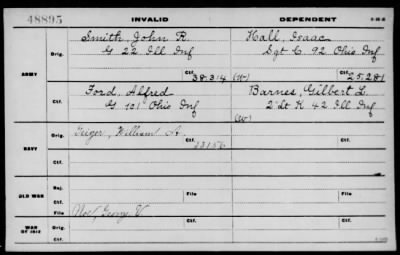 48895
INVALID
DEPENDENT
ARMY
Orig.
Smith, John R.
G 22 Ill Inf
Ctf.
38314
Hall, Isaac
Sgt C. 92 Ohio Inf
(W)
Ctf.
25281
Ctf.
Ford, Alfred
G 121 Ohio Inf
Barnes, Gilbert L.
2" Lt K 42 Ill Inf
(W)
NAVY
Orig.
Geiger, William A.
Ctf.
23156
Ctf.
Ctf.
OLD WAR
Rej.
Ctf.
File
File
WAR OF 1812
Orig.
Noe, George V.
Ctf.
Ctf.
Ctf.